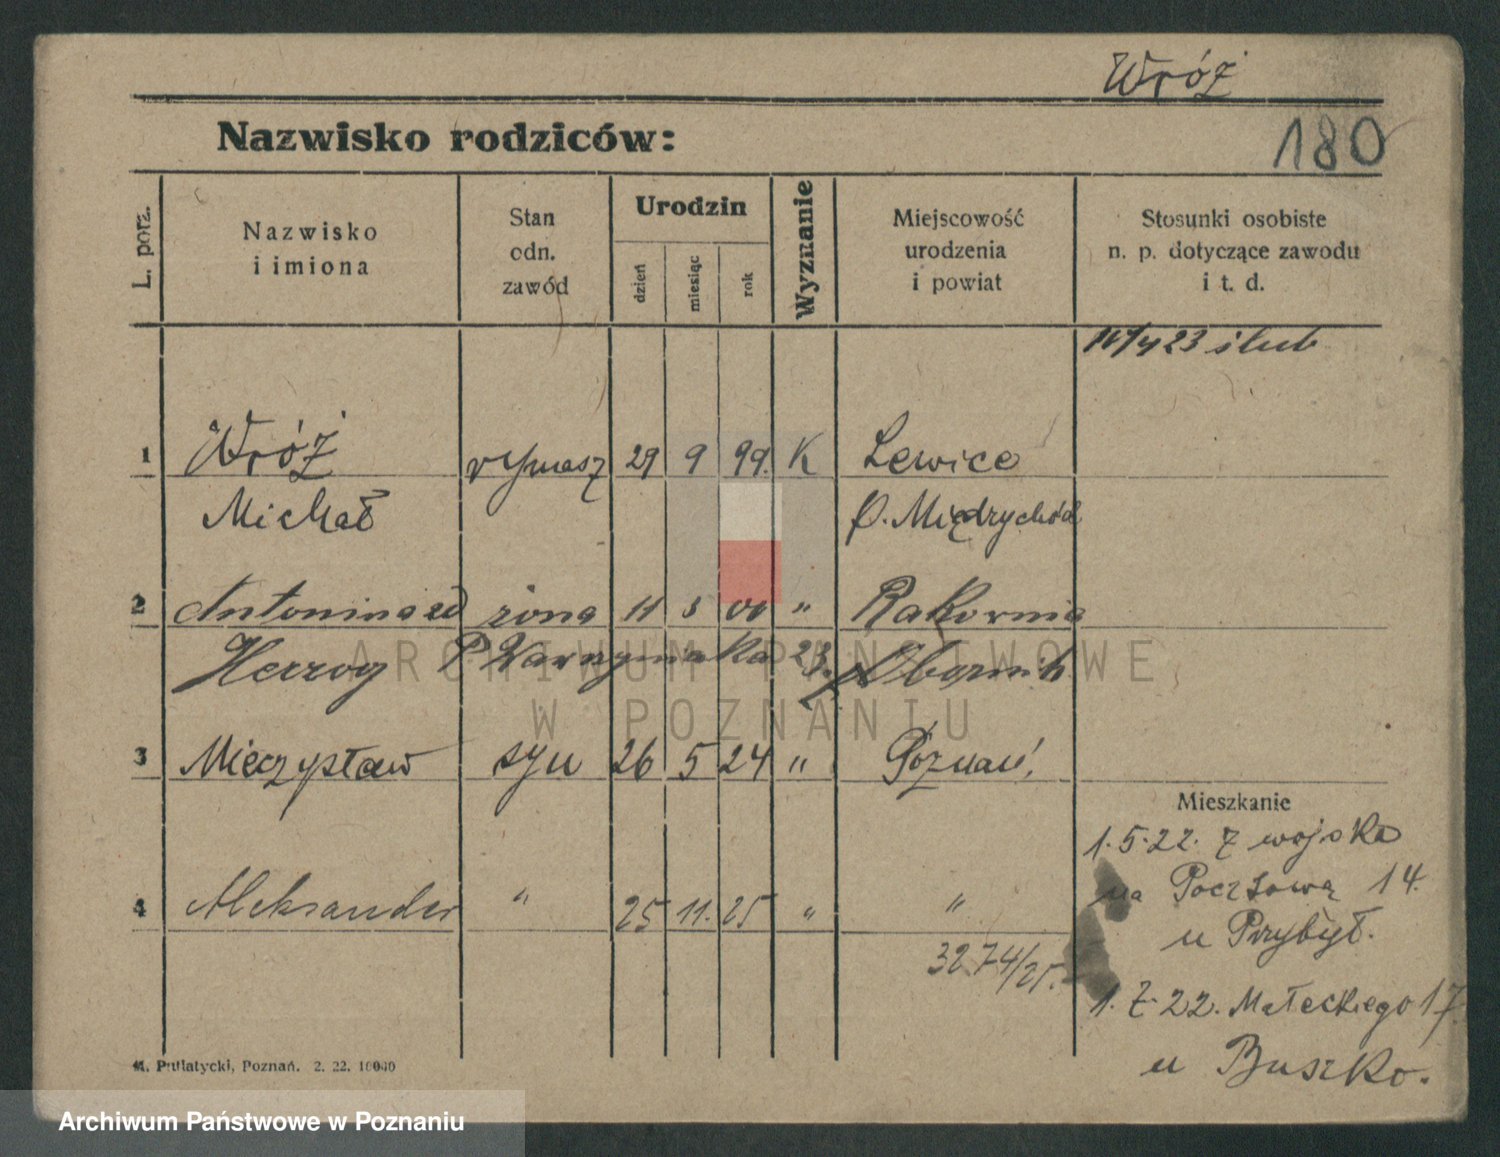 Wróż
Nazwisko rodziców:
180
L. porz.
Nazwisko
i imiona
Stan
odn.
zawód
Urodzin
dzień
miesiąc
rok
Wyznanie
Miejscowość
urodzenia
i powiat
Stosunki osobiste
n. p. dotyczące zawodu
i t. d.
23 ślub
1 Wróż 29 9 99. K Lewice
Michał p. Międzychód
2 Antonina żona 11 00 " Rakownia
Herzog 23. Obornik
3 Mieczysław syn 26 5 24 " Poznań,
Mieszkanie
1.5.22. z wojska
na Pocztową 14.
4 Aleksander " 25 11. 25 " "
u Przybył.
3274/25.
1.7.22. Małeckiego 17.
u Buszko.
M. Putiatycki, Poznań. 2. 22. 10000
ARCHIWUM PAŃSTWOWE
W POZNANIU
Archiwum Państwowe w Poznaniu